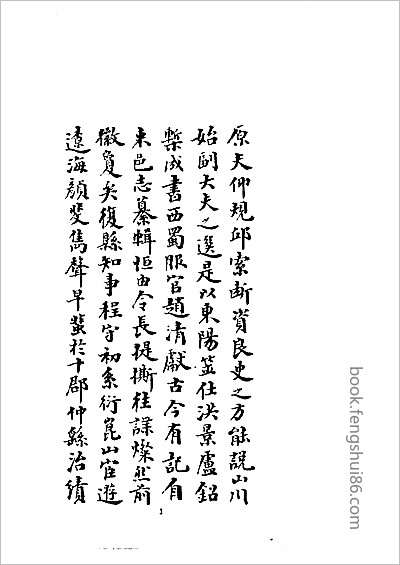 原夫仰規邱索斷資良史之方能說山川
始副大夫之選是以東陽筮仕洪景盧鉛
槧成書西蜀服官趙清獻古今有記有
末邑志纂輯恒由令長提撕往諜燦然前
徽夐矣復縣知事程守初系衍崑山宦遊
遼海顏斐雋聲早蜚於十郡仲縣治績
1
book.fengshui86.com